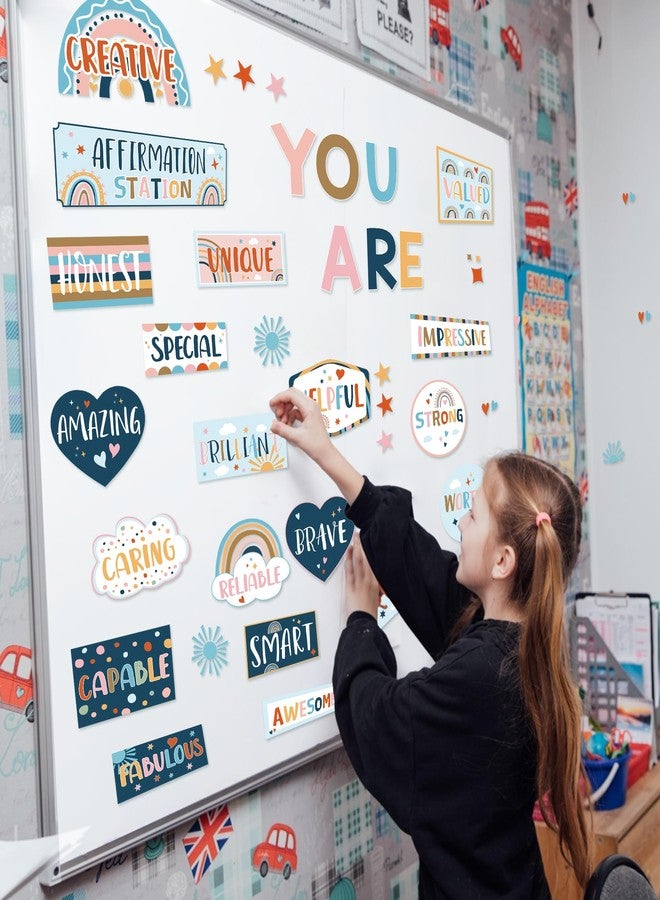 CREATIVE
AFFIRMATION
STATION
YOU
ARE
VALUED
HONEST
UNIQUE
SPECIAL
IMPRESSIVE
AMAZING
BRILLIAN
HELPFUL
STRONG
CARING
RELIABLE
BRAVE
WORT
CAPABLE
SMART
AWESOM
FABULOUS
PLEASE?
ENGLISH
ALPHABET